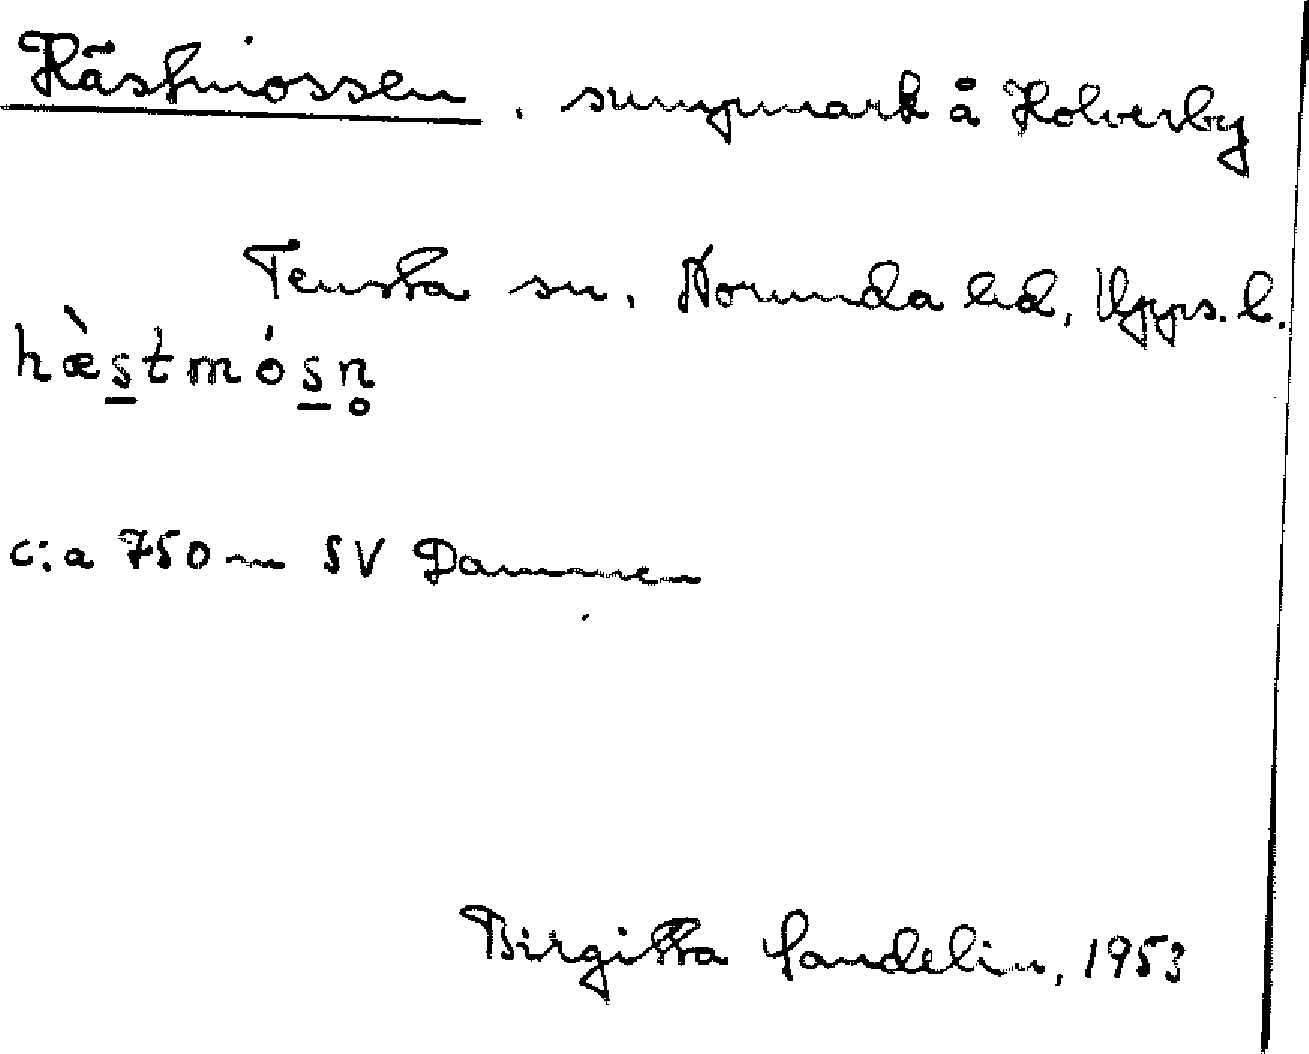 Hästmossen, sumpmark å Holverby
Tensta sn. Norunda hd, Upps. l.
hæ̀s̲tmós̲n̥
c:a 750 m SV Dammen
Birgitta Sandelin, 1953